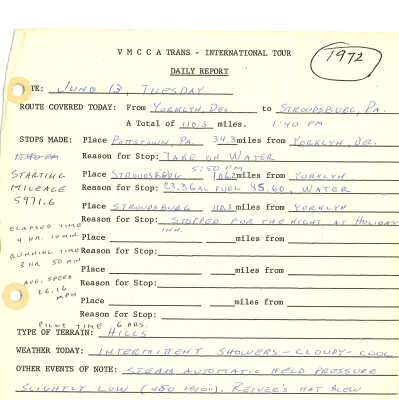 V M C C A TRANS - INTERNATIONAL TOUR
1972
DAILY REPORT
TE: JUNE 13, TUESDAY
ROUTE COVERED TODAY: From YORKLYN, DEL. to STROUDSBURG, PA.
A Total of 110.3 miles. 1:40 PM
STOPS MADE: Place POTTSTOWN, PA. 34.3 miles from YORKLYN, DEL.
Reason for Stop: TAKE ON WATER
5:50 PM
STARTING Place STROUDSBURG miles from YORKLYN
MILEAGE Reason for Stop: 23.3 GAL FUEL $5.60, WATER
5971.6
Place STROUDSBURG 110.3 miles from YORKLYN
Reason for Stop: STOPPED FOR THE NIGHT AT HOLIDAY
INN.
ELAPSED TIME
4 HR. 10 MIN Place miles from
RUNNING TIME Reason for Stop:
3 HR 50 MIN
Place miles from
AVG. SPEED Reason for Stop:
26.16
MPH
Place miles from
Reason for Stop:
PILOT TIME 6 HRS.
TYPE OF TERRAIN: HILLS
WEATHER TODAY: INTERMITTENT SHOWERS - CLOUDY - COOL
OTHER EVENTS OF NOTE: STEAM AUTOMATIC HELD PRESSURE
SLIGHTLY LOW REIVER'S HAT BLEW